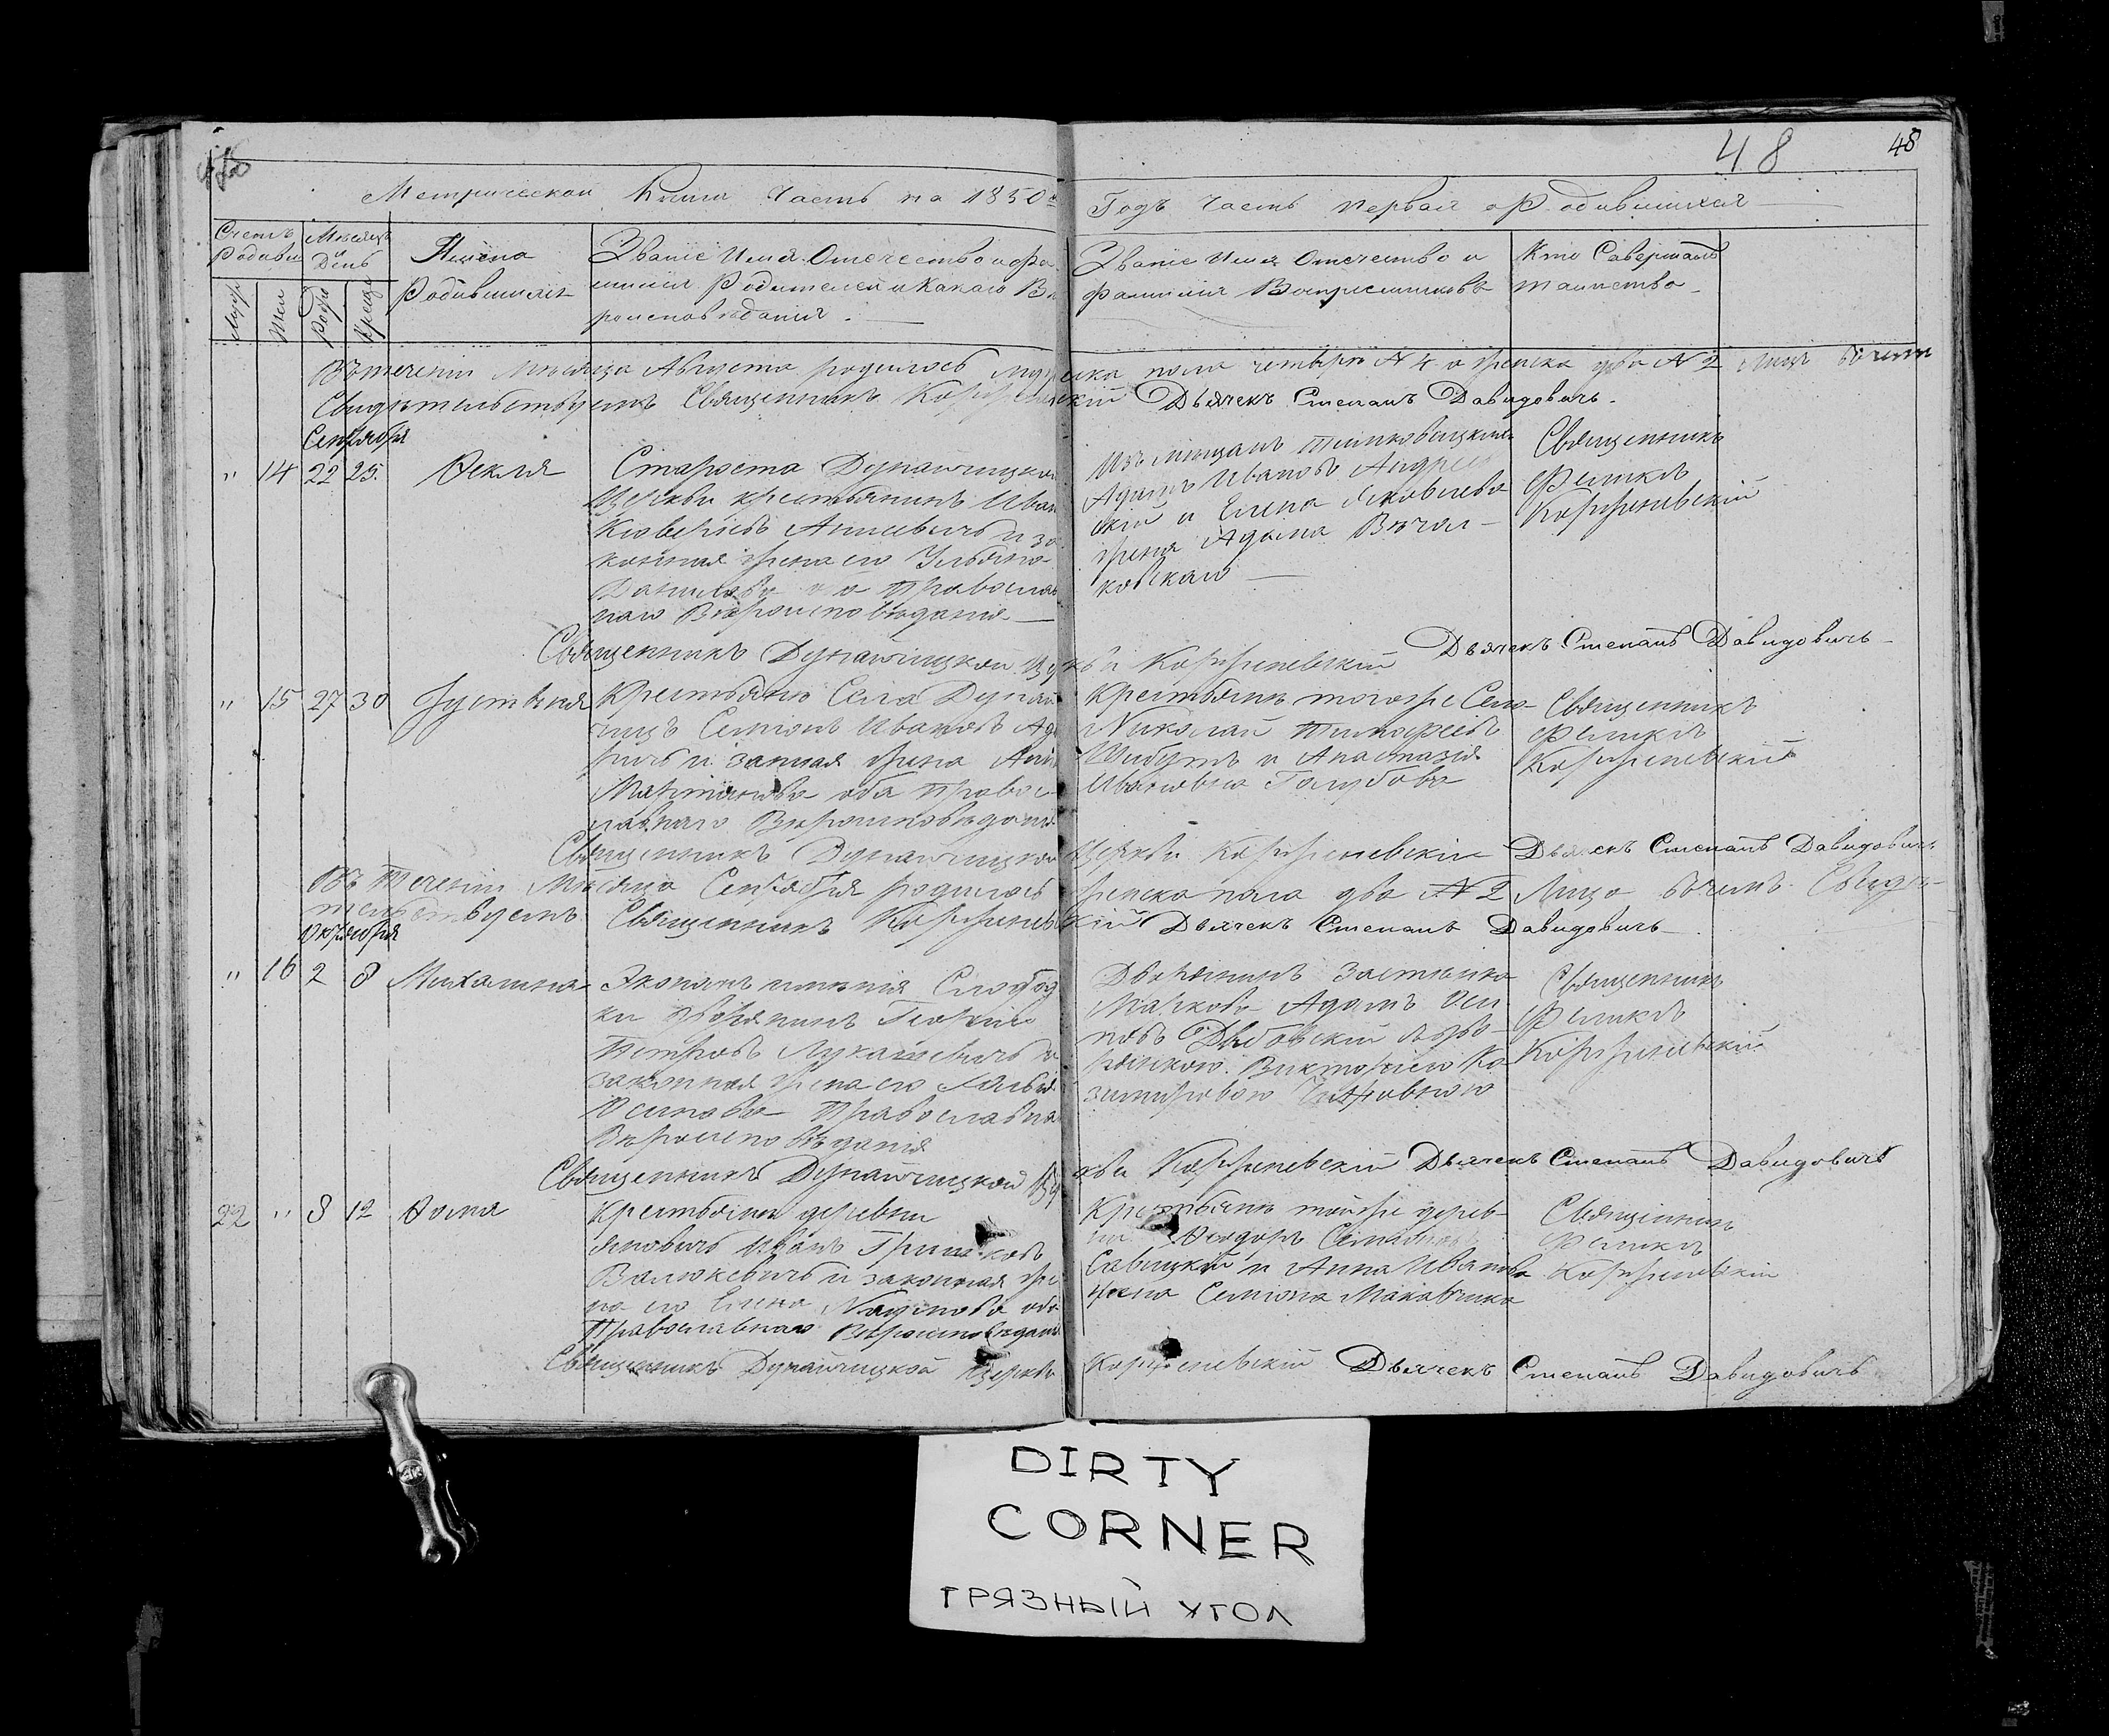 48
48
Метрической Книги Часть на 1850й
Годъ Часть первая о Родившихся
Счетъ Родивш
Мѣсяцъ и День
Имена Родившихся
Званіе Имя Отечество и фа
милія Родителей и Какого Вѣ
роисповѣданія.
Званіе Имя Отечество и
фамилія Воспріемниковъ
Кто Савершалъ
таинство
Муж
Жен
Рожд
Крещ
Въ теченіи Мѣсяца Августа родилось мужеска пола четыри N 4 а женска два N 2
Свидѣтельствуемъ Священникъ Корженевскій Дьячекъ Степанъ Давидовичъ
Сентября
" 14 22 25. Ѳекля
Староста Дунайчицкой
Церкви крестьянинъ Иван
и за
конная жена его Ульяна
Данилова Православ
наго Вѣроисповѣданія
Изъ мѣщанъ
Адамъ Ивановъ
скій и Елена Яковлева
жена Адама
ковскаго
Священникъ
Феликсъ
Корженевскій
Священникъ Дунайчицкой Церкви Корженевскій Дьячекъ Степанъ Давидовичъ
" 15 27 30 Іустинія
Крестьяне Села Дунай
чицъ Семіонъ Ивановъ
и законая жена
Мартинова оба Право
славнаго Вѣроисповѣданія
Крестьянъ тогоже Села
Николай Тимофеевъ
Шибутъ и Анастазія
Ивановна Голубова
Священникъ
Феликсъ
Корженевскій
Священникъ Дунайчицкой Церкви Корженевскій Дьячекъ Степанъ Давидовичъ
Въ теченіи Мѣсяца Сентября родилось женска пола два N 2 Свидѣ
тельствуемъ Священникъ Корженевскій Дьячекъ Степанъ Давидовичъ
Октября
" 16 2 8 Михалина
Экономъ имѣнія Слобод
ки дворянинъ Георгій
Петровъ Лукашевичъ и
законная жена его
Осипова Православна
Вѣроисповѣданія
Дворянинъ Застѣнка
Малкова Адамъ Оси
повъ съ дво
рянкою Викторіею Ка
зимировою
Священникъ
Феликсъ
Корженевскій
Священникъ Дунайчицкой Церкви Корженевскій Дьячекъ Степанъ Давидовичъ
22 " 8 12 Ѳома
Крестьяни деревни
Яновичъ Иванъ
Валюкевичъ и законная же
на его Елена оба
Православнаго Вѣроисповѣданія
Крестьянъ тойже дерев
ни Ѳеодоръ
Савицкій и Анна Иванова
жена Семіона
Священникъ
Феликсъ
Корженевскій
Священникъ Дунайчицкой Церкви Корженевскій Дьячекъ Степанъ Давидовичъ
DIRTY
CORNER
ГРЯЗНЫЙ УГОЛ